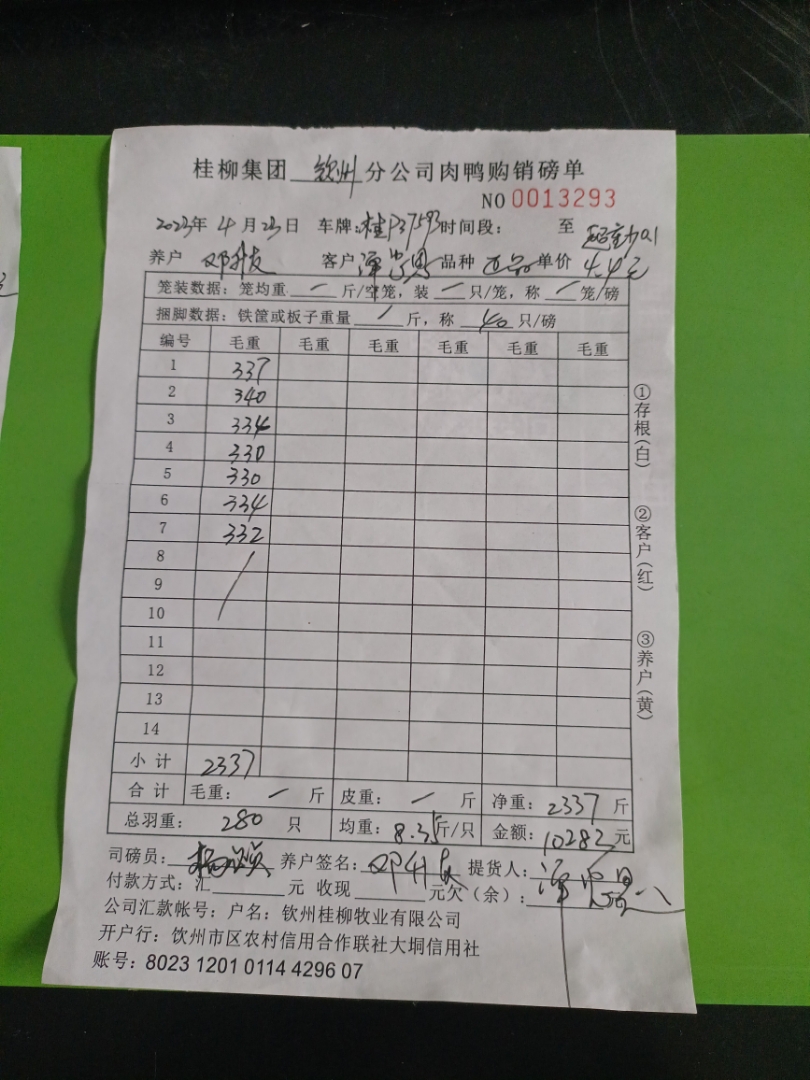 桂柳集团 钦州 分公司肉鸭购销磅单
NO 0013293
2023年 4月23日 车牌:桂P37593 时间段: 至
养户 邓升友 客户 品种 正品 单价 4.4元
笼装数据: 笼均重 / 斤/空笼, 装 / 只/笼, 称 / 笼/磅
捆脚数据: 铁筐或板子重量 / 斤, 称 40 只/磅
编号 毛重 毛重 毛重 毛重 毛重 毛重
1 337
2 340
3 334
4 330
5 330
6 334
7 332
8 /
9
10
11
12
13
14
小计 2337
合计 毛重: / 斤 皮重: / 斤 净重: 2337 斤
总羽重: 280 只 均重: 8.35斤/只 金额: 10282元
司磅员: 养户签名: 邓升友 提货人:
付款方式: 汇 元 收现 元欠(余):
公司汇款帐号: 户名: 钦州桂柳牧业有限公司
开户行: 钦州市区农村信用合作联社大垌信用社
账号: 8023 1201 0114 4296 07
①存根(白)
②客户(红)
③养户(黄)